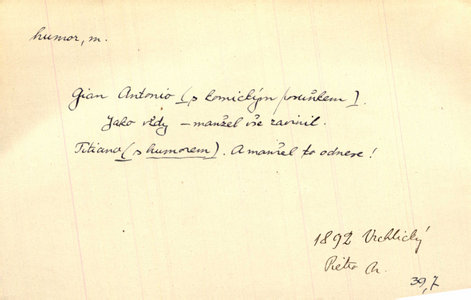 humor, m.
Gian Antonio [s komickým posuňkem].
Jako vždy – manžel vše zavinil.
Titiano (s humorem). A manžel to odnese!
1892 Vrchlický
Pietro A.
39,7